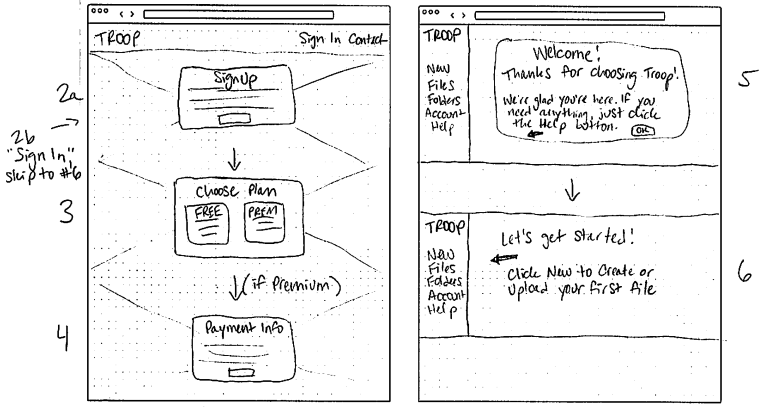 TROOP
Sign In Contact
Sign Up
2a
2b
"Sign In"
skip to #6
Choose Plan
FREE
PREM
3
(if Premium)
Payment Info
4
TROOP
New
Files
Folders
Account
Help
Welcome!
Thanks for choosing Troop!
We're glad you're here. If you
need anything, just click
the Help button.
OK
5
TROOP
New
Files
Folders
Account
Help
Let's get started!
Click New to Create or
Upload your first file
6